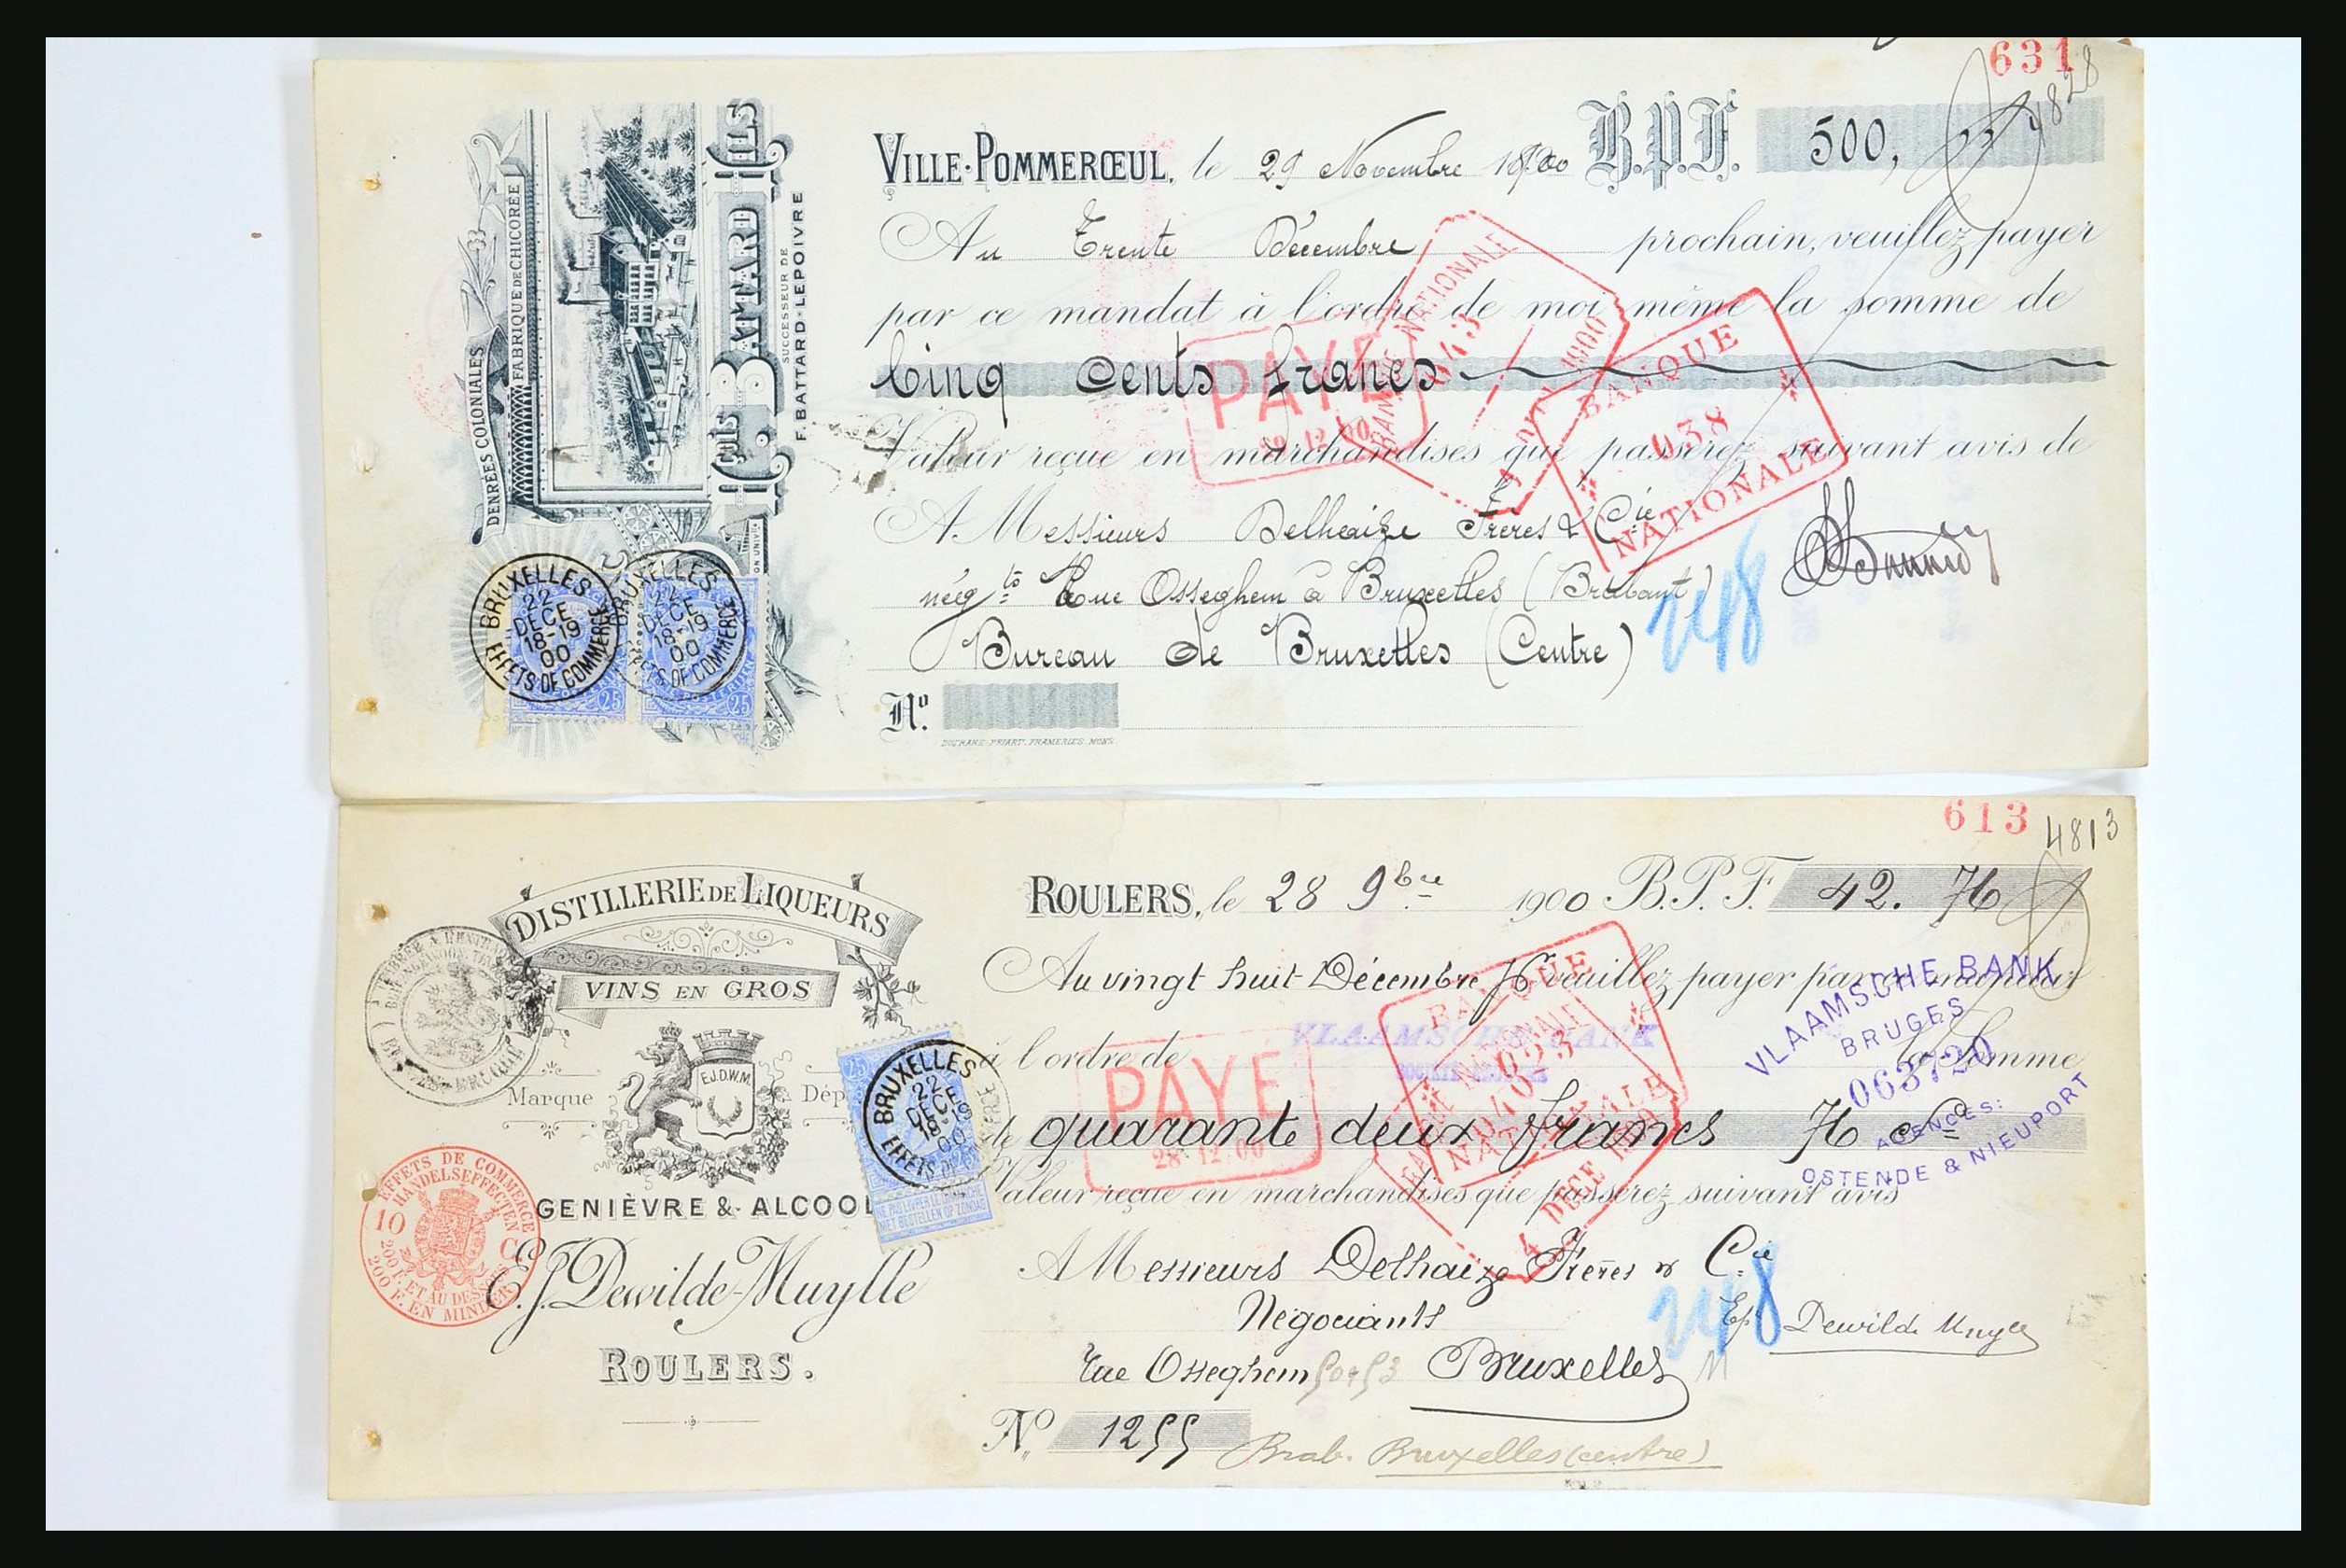 631
4828
DENRÉES COLONIALES
FABRIQUE DE CHICORÉE
Louis BATTARD FILS
SUCCESSEUR DE
F. BATTARD-LEPOIVRE
VILLE-POMMERŒUL, le 29 Novembre 1900 B.P.F. 500,
Au Trente Décembre prochain, veuillez payer
par ce mandat à l'ordre de moi même la somme de
Cinq cents francs
Valeur reçue en marchandises que passerez suivant avis de
A Messieurs Delhaize Frères & Cie
nég ts Rue Osseghem à Bruxelles (Brabant)
Bureau de Bruxelles (Centre)
No.
DUCRANE-PRIART, FRAMERIES, MONS.
PAYE
12 00
NATIONALE
1900
BANQUE
038
NATIONALE
248
BRUXELLES
22
DECE
18-19
00
EFFETS DE COMMERCE
BRUXELLES
22
DECE
18-19
00
EFFETS DE COMMERCE
25
25
613
4813
DISTILLERIE DE LIQUEURS
VINS EN GROS
Marque Dép
E.J.D.W.M.
GENIÈVRE & ALCOOL
E.J. Dewilde-Muylle
ROULERS.
EFFETS DE COMMERCE
HANDELSEFFECTEN
10 C
200 F. ET AU DESSOUS
200 F. EN MINDER
25
BRUXELLES
22
DECE
18-19
00
EFFETS DE
NE PAS LIVRER LE DIMANCHE
NIET BESTELLEN OP ZONDAG
ROULERS, le 28 9bre 1900 B.P.F. 42. 76
Au vingt huit Décembre veuillez payer par ce mandat
à l'ordre de la Somme
de quarante deux francs 76 cs
Valeur reçue en marchandises que passerez suivant avis
A Messieurs Delhaize Frères & Cie
Négociants
Rue Osseghem 50 53 Bruxelles
No 1255
Brab. Bruxelles (centre)
VLAAMSCHE BANK
PAYE
28 12 00
BANQUE
023
NATIONALE
4 DECE 1900
VLAAMSCHE BANK
BRUGES
063720
AGENCES:
OSTENDE & NIEUPORT
248
Dewilde Muylle